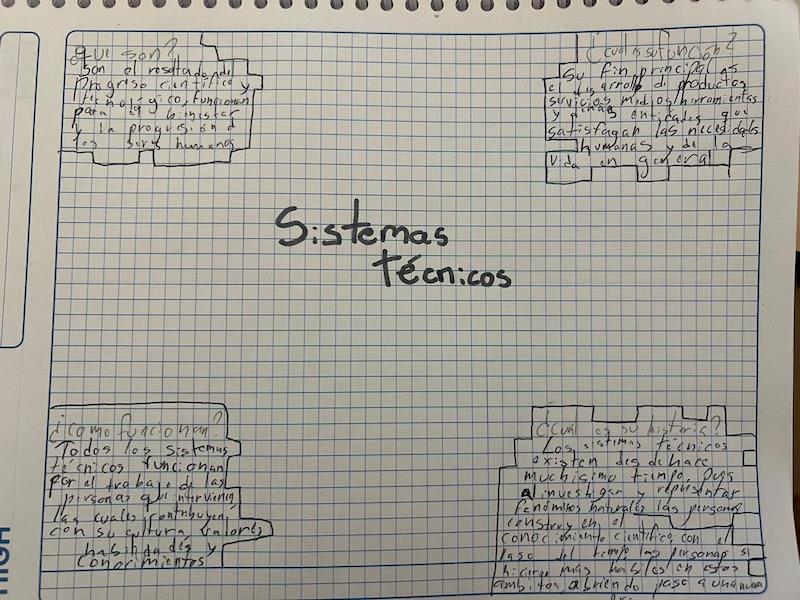 ¿qui son?
Son el resultado del
Progreso cientifico y
tecnológico, funcionan
para el bienestar
y la progresión d
los seres humanos
¿cual es su función?
Su fin principal es
el desarrollo de productos
servicios medios herramientas
y demas entidades que
satisfagan las necesidades
humanas y de la
vida en general
Sistemas
técnicos
¿como funcionan?
Todos los sistemas
técnicos funcionan
por el trabajo de las
personas que intervienen
las cuales contribuyen
con su cultura valores
habilidades y
conocimientos
¿Cuál es su historia?
Los sistemas técnicos
existen desde hace
muchisimo tiempo. Pues
al investigar y representar
fenómenos naturales las personas
construyen el
conocimiento cientifico con el
paso del tiempo las personas si
hicieron mas habiles en estos
ambitos abriendo paso a una nueva
HIGH